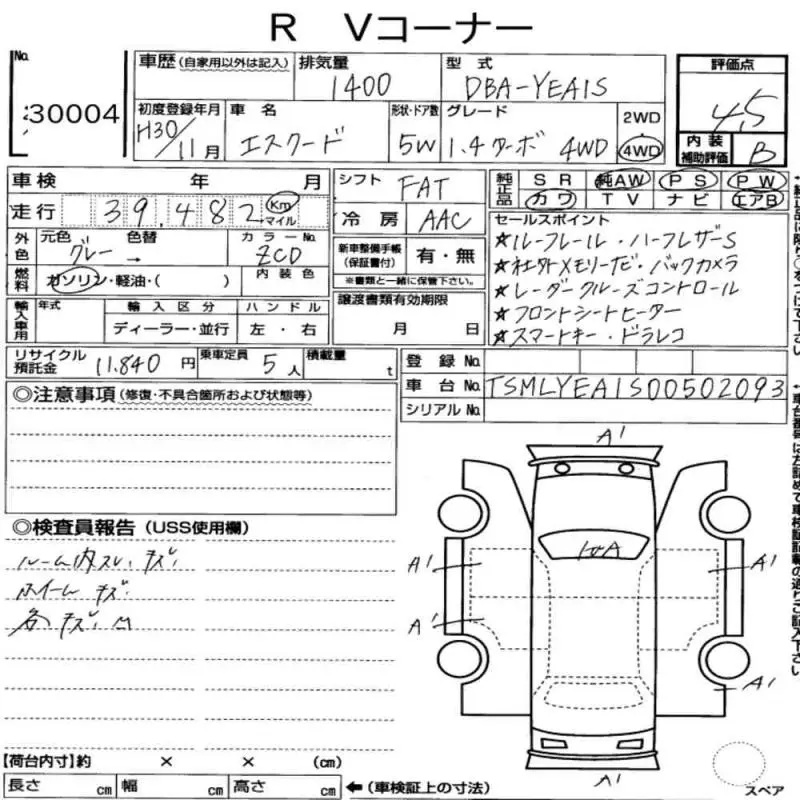 R Vコーナー
No. 30004
車歴 (自家用以外は記入) 排気量 1400 型式 DBA-YEA1S 評価点 4.5
初度登録年月 H30/11月 車名 エスクード 形状・ドア数 5W グレード 1.4ターボ 4WD 2WD 4WD 内装補助評価 B
車検 年 月 シフト FAT 純正品 SR 純AW PS PW
走行 39,482 Km マイル 冷房 AAC カワ TV ナビ エアB
外色 元色 グレー → 色替 カラーNo. ZCD 新車整備手帳(保証書付) 有・無 ※書類と一緒に保管下さい。
セールスポイント
★ルーフレール・ハーフレザーS
★社外メモリーナビ・バックカメラ
★レーダークルーズコントロール
★フロントシートヒーター
★スマートキー・ドラレコ
燃料 ガソリン・軽油・( ) 内装色
輸入車用 年式 輸入区分 ハンドル 譲渡書類有効期限
ディーラー・並行 左・右 月 日
リサイクル預託金 11,840円 乗車定員 5人 積載量 t 登録No.
車台No. TSMLYEA1S00502093
シリアルNo.
◎注意事項 (修復・不具合箇所および状態等)
A1
◎検査員報告 (USS使用欄)
ルーム内スレ、キズ
A1 A1
ホイールキズ
各キズ
A1
A1
【荷台内寸】約 × × (cm)
長さ cm 幅 cm 高さ cm ← (車検証上の寸法) A1 スペア